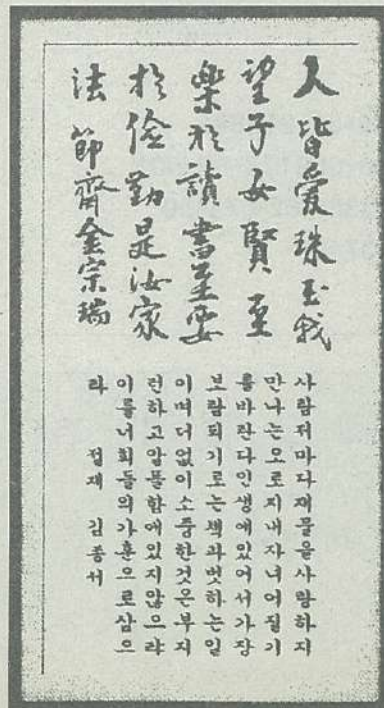 人皆愛珠玉我
望子女賢至
樂於讀書至要
於儉勤是汝家
法 節齋金宗瑞
사람저마다재물을사랑하지
만나는오로지내자녀어질기
를바란다인생에있어서가장
보람되기로는책과벗하는일
이며더없이소중한것은부지
런하고알뜰함에있지않으랴
이를너희들의가훈으로삼으
라 절재 김종서